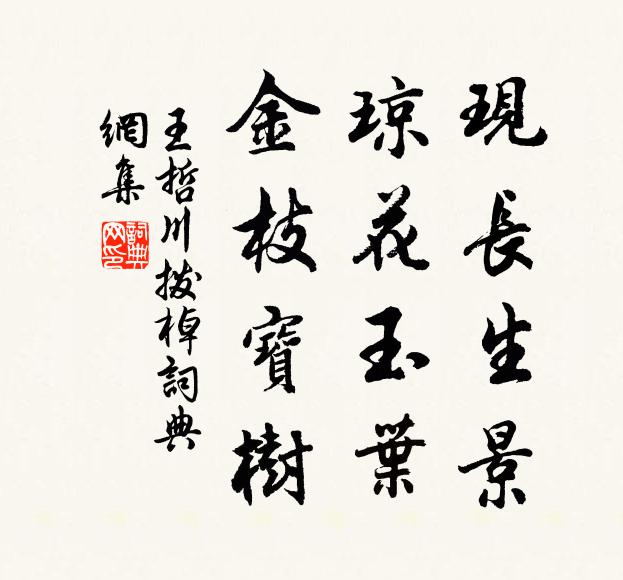 現長生景
琼花玉葉
金枝寶樹
王哲川撥棹詞典
網集
詞典
网印